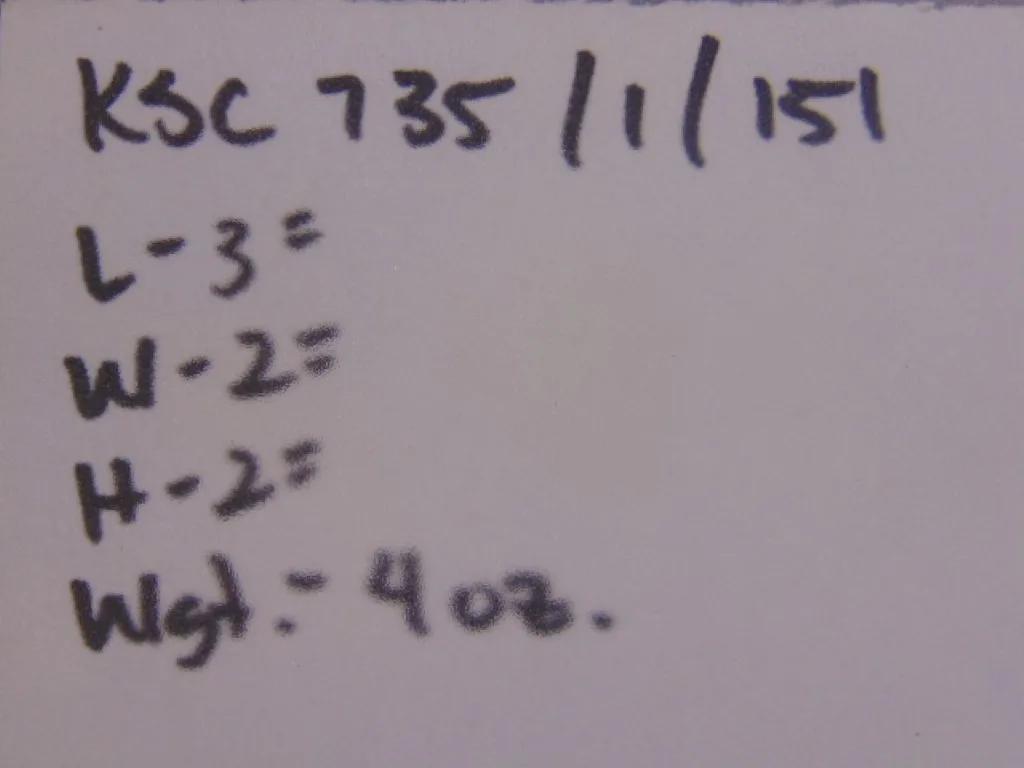 KSC 735/1/151
L - 3"
W - 2"
H - 2"
Wgt. - 4 oz.